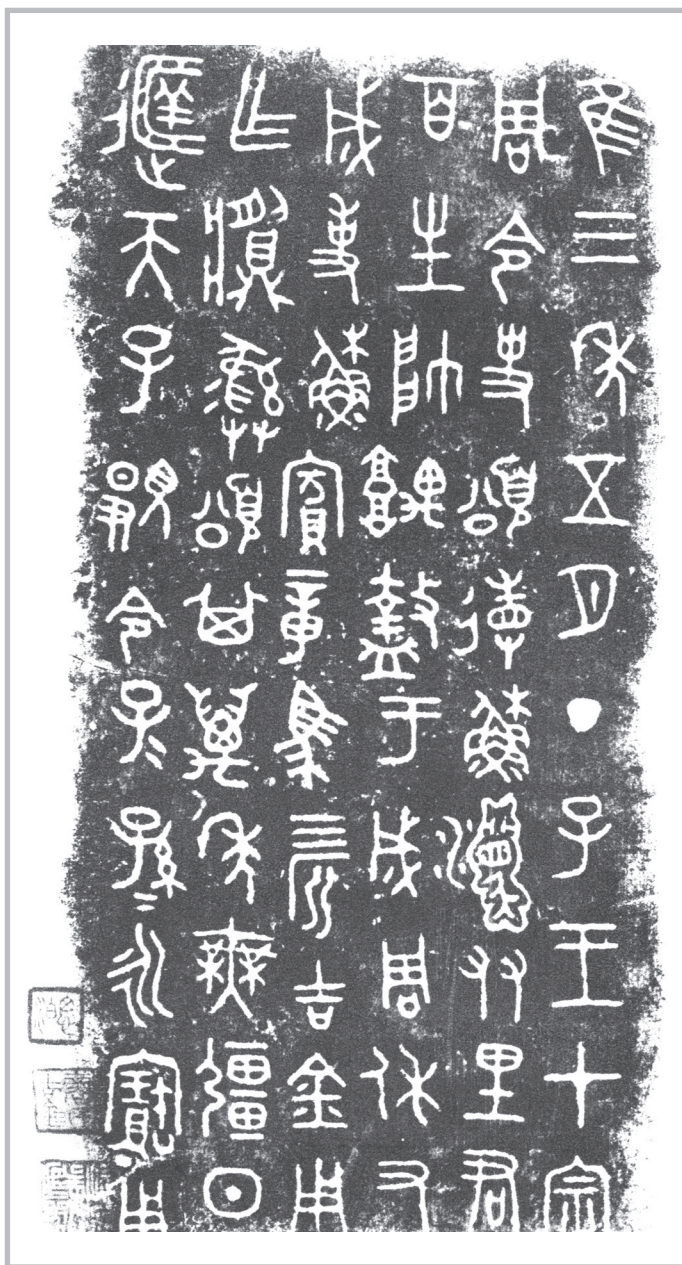 隹三年五月丁子王才宗
周令史頌省蘇友里君
百生帥盩于成周休又
成事蘇賓章馬四匹吉金用
乍彝頌其萬年無疆日
天子令子₌孫₌永寶用